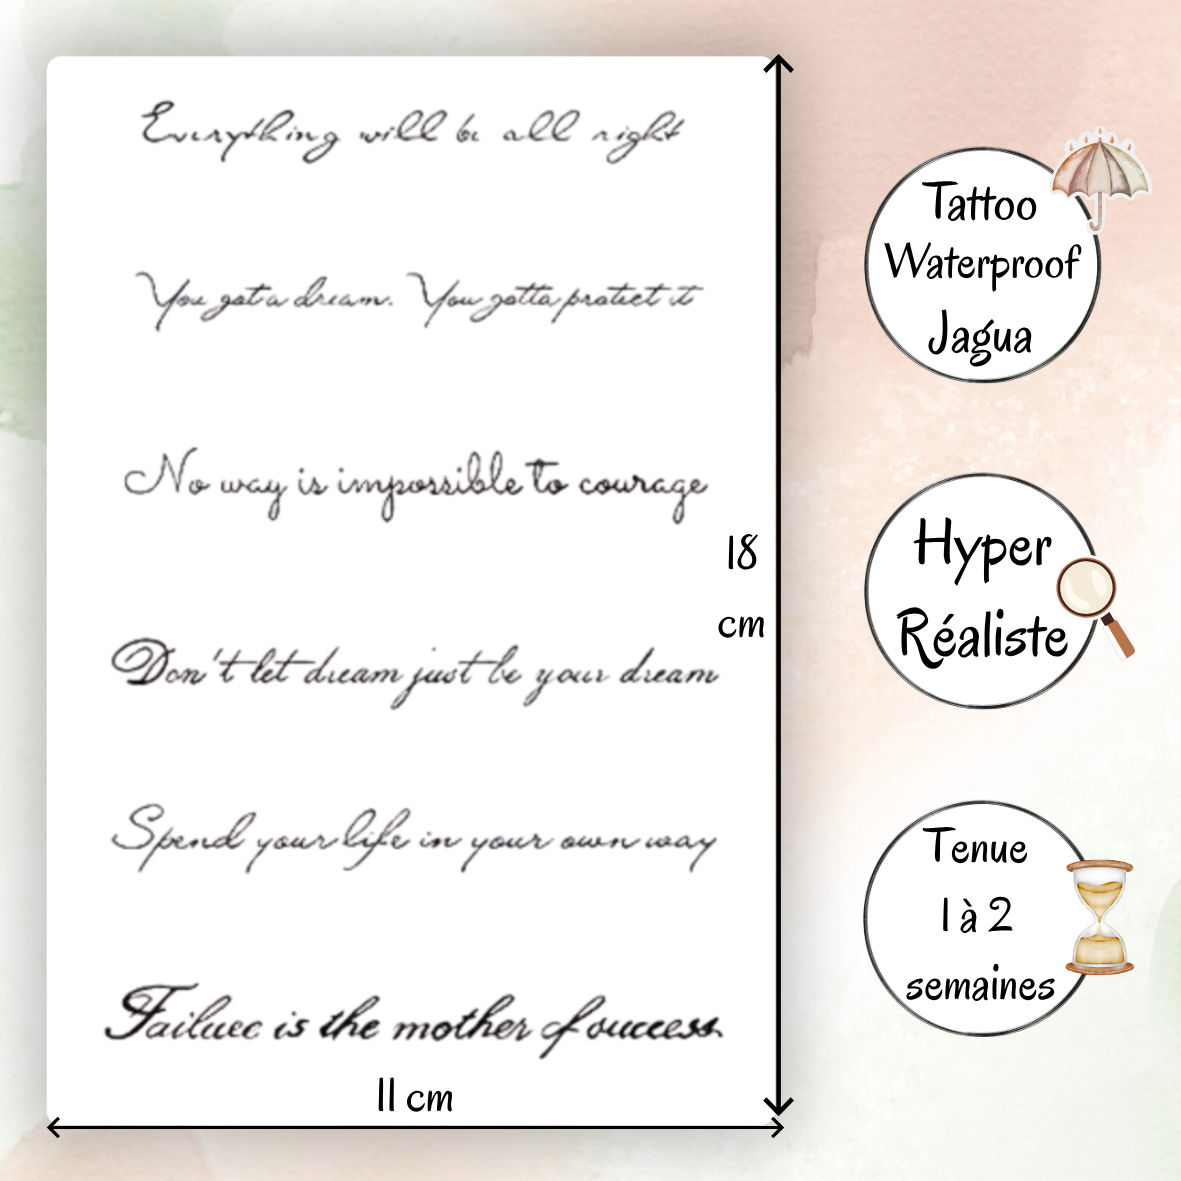 Everything will be all right
You got a dream. You gotta protect it
No way is impossible to courage
Don't let dream just be your dream
Spend your life in your own way
Failure is the mother of success
18
cm
11 cm
Tattoo
Waterproof
Jagua
Hyper
Réaliste
Tenue
1 à 2
semaines